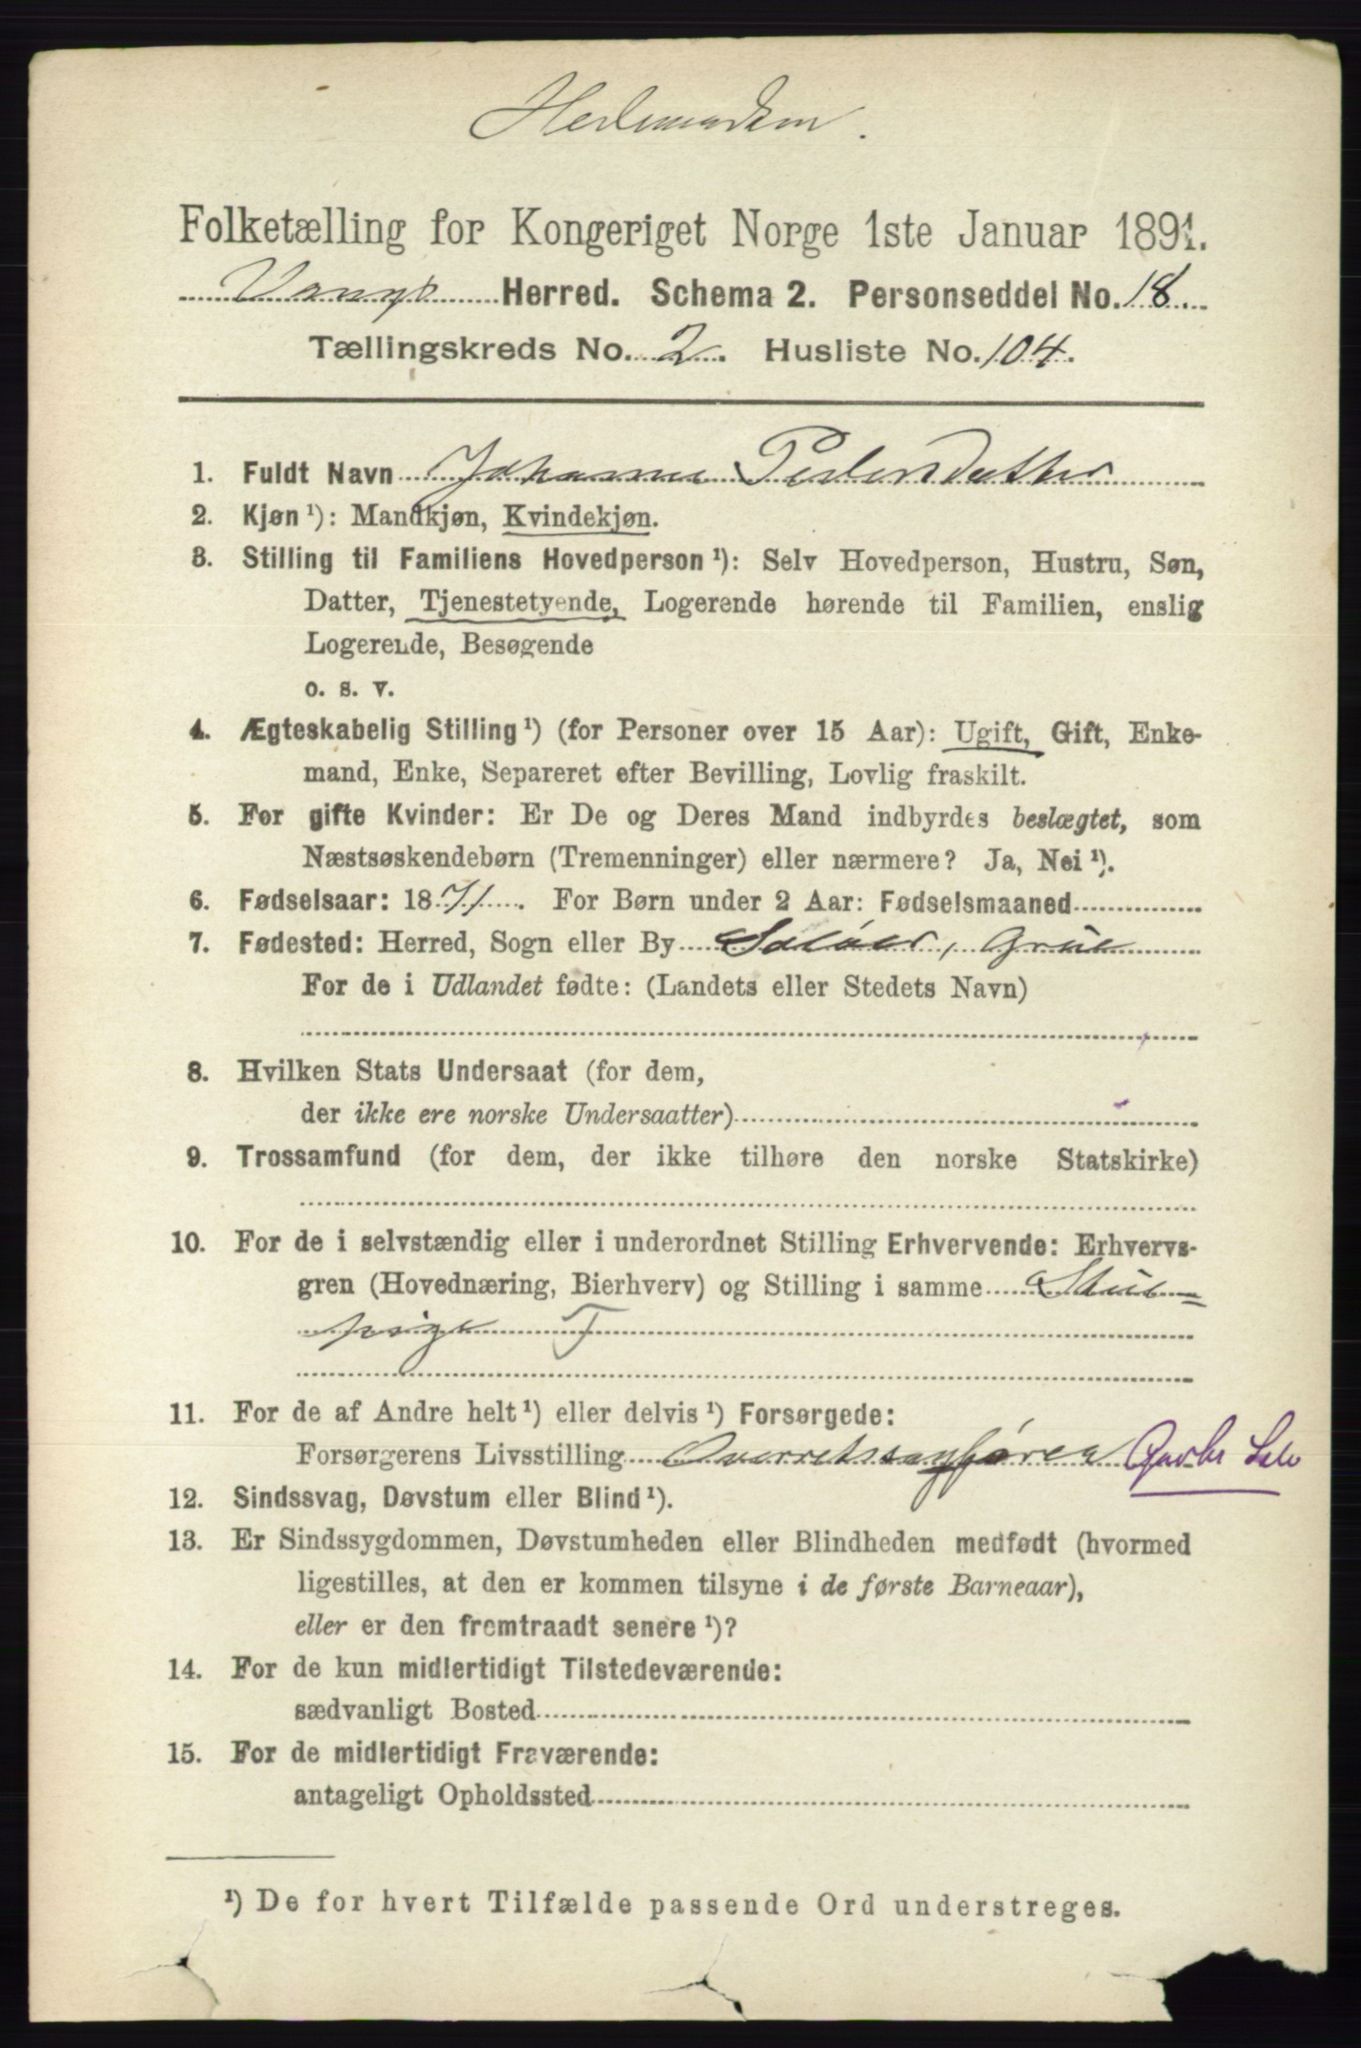 Hedemarken.
Folketælling for Kongeriget Norge 1ste Januar 1891.
Vangs Herred. Schema 2. Personseddel No. 18.
Tællingskreds No. 2. Husliste No. 104.
1. Fuldt Navn Johanne Pedersdatter
2. Kjøn ¹): Mandkjøn, Kvindekjøn.
3. Stilling til Familiens Hovedperson ¹): Selv Hovedperson, Hustru, Søn,
Datter, Tjenestetyende, Logerende hørende til Familien, enslig
Logerende, Besøgende
o. s. v.
4. Ægteskabelig Stilling ¹) (for Personer over 15 Aar): Ugift, Gift, Enke-
mand, Enke, Separeret efter Bevilling, Lovlig fraskilt.
5. For gifte Kvinder: Er De og Deres Mand indbyrdes beslægtet, som
Næstsøskendebørn (Tremenninger) eller nærmere? Ja, Nei ¹).
6. Fødselsaar: 1871. For Børn under 2 Aar: Fødselsmaaned
7. Fødested: Herred, Sogn eller By Soløer, Grue
For de i Udlandet fødte: (Landets eller Stedets Navn)
8. Hvilken Stats Undersaat (for dem,
der ikke ere norske Undersaatter)
9. Trossamfund (for dem, der ikke tilhøre den norske Statskirke)
10. For de i selvstændig eller i underordnet Stilling Erhvervende: Erhvervs-
gren (Hovednæring, Bierhverv) og Stilling i samme Stue-
pige T
11. For de af Andre helt ¹) eller delvis ¹) Forsørgede:
Forsørgerens Livsstilling Overretssagfører
12. Sindssvag, Døvstum eller Blind ¹).
13. Er Sindssygdommen, Døvstumheden eller Blindheden medfødt (hvormed
ligestilles, at den er kommen tilsyne i de første Barneaar),
eller er den fremtraadt senere ¹)?
14. For de kun midlertidigt Tilstedeværende:
sædvanligt Bosted
15. For de midlertidigt Fraværende:
antageligt Opholdssted
¹) De for hvert Tilfælde passende Ord understreges.